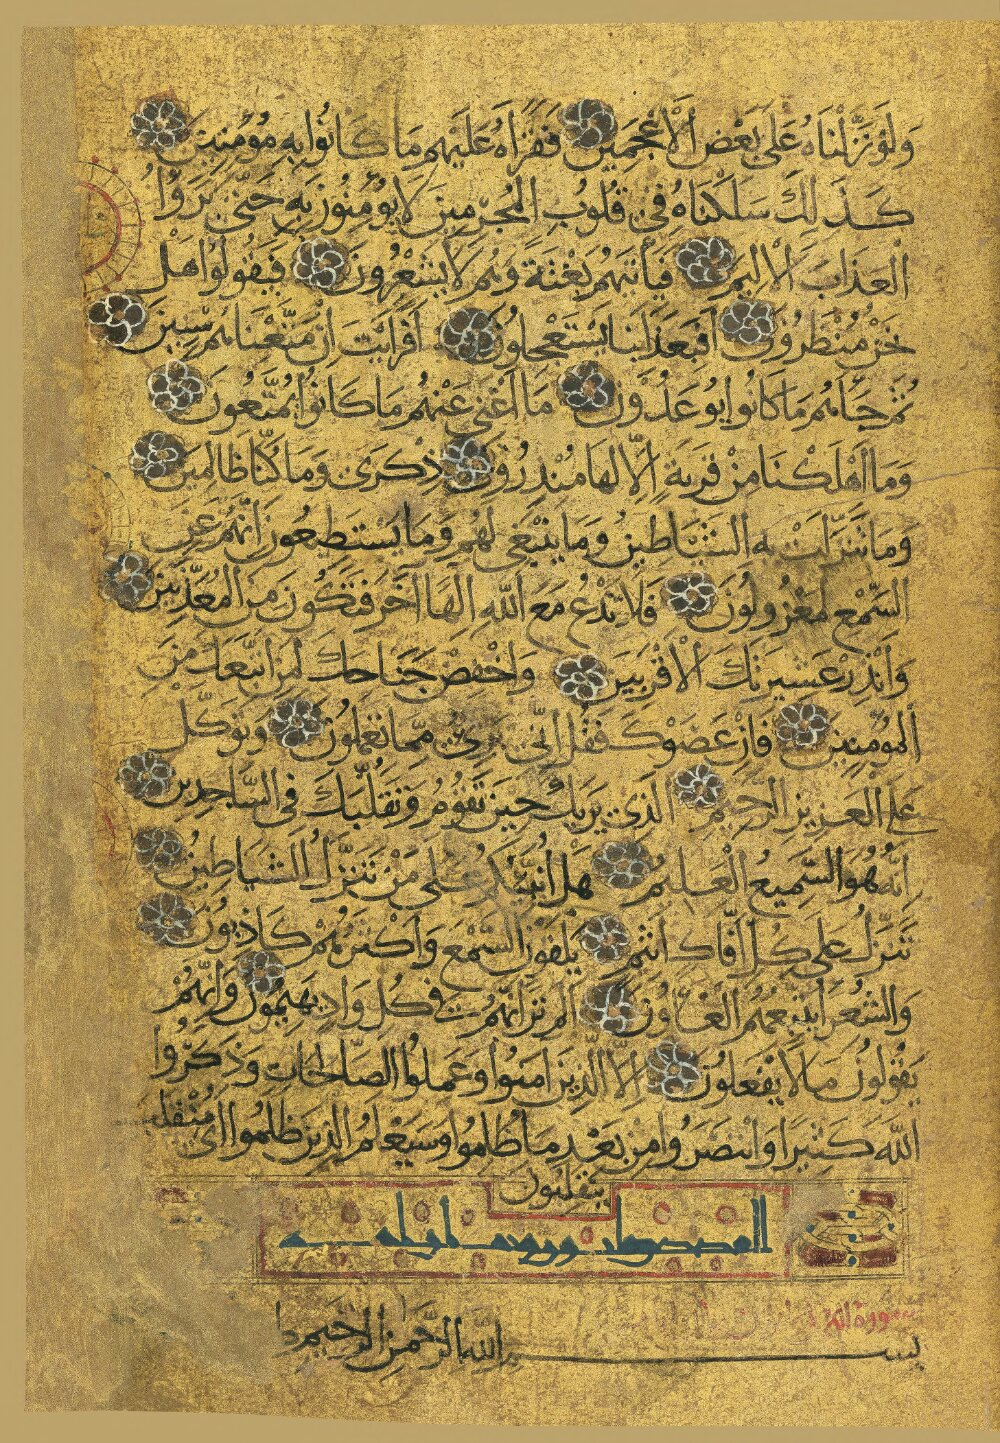 وَلَوْ نَزَّلْنَاهُ عَلَى بَعْضِ الْأَعْجَمِينَ فَقَرَأَهُ عَلَيْهِمْ مَا كَانُوا بِهِ مُؤْمِنِينَ
كَذَلِكَ سَلَكْنَاهُ فِي قُلُوبِ الْمُجْرِمِينَ لَا يُؤْمِنُونَ بِهِ حَتَّى يَرَوُا
الْعَذَابَ الْأَلِيمَ فَيَأْتِيَهُمْ بَغْتَةً وَهُمْ لَا يَشْعُرُونَ فَيَقُولُوا هَلْ
نَحْنُ مُنْظَرُونَ أَفَبِعَذَابِنَا يَسْتَعْجِلُونَ أَفَرَأَيْتَ إِنْ مَتَّعْنَاهُمْ سِنِينَ
ثُمَّ جَاءَهُمْ مَا كَانُوا يُوعَدُونَ مَا أَغْنَى عَنْهُمْ مَا كَانُوا يُمَتَّعُونَ
وَمَا أَهْلَكْنَا مِنْ قَرْيَةٍ إِلَّا لَهَا مُنْذِرُونَ ذِكْرَى وَمَا كُنَّا ظَالِمِينَ
وَمَا تَنَزَّلَتْ بِهِ الشَّيَاطِينُ وَمَا يَنْبَغِي لَهُمْ وَمَا يَسْتَطِيعُونَ إِنَّهُمْ عَنِ
السَّمْعِ لَمَعْزُولُونَ فَلَا تَدْعُ مَعَ اللَّهِ إِلَهًا آخَرَ فَتَكُونَ مِنَ الْمُعَذَّبِينَ
وَأَنْذِرْ عَشِيرَتَكَ الْأَقْرَبِينَ وَاخْفِضْ جَنَاحَكَ لِمَنِ اتَّبَعَكَ مِنَ
الْمُؤْمِنِينَ فَإِنْ عَصَوْكَ فَقُلْ إِنِّي بَرِيءٌ مِمَّا تَعْمَلُونَ وَتَوَكَّلْ
عَلَى الْعَزِيزِ الرَّحِيمِ الَّذِي يَرَاكَ حِينَ تَقُومُ وَتَقَلُّبَكَ فِي السَّاجِدِينَ
إِنَّهُ هُوَ السَّمِيعُ الْعَلِيمُ هَلْ أُنَبِّئُكُمْ عَلَى مَنْ تَنَزَّلُ الشَّيَاطِينُ
تَنَزَّلُ عَلَى كُلِّ أَفَّاكٍ أَثِيمٍ يُلْقُونَ السَّمْعَ وَأَكْثَرُهُمْ كَاذِبُونَ
وَالشُّعَرَاءُ يَتَّبِعُهُمُ الْغَاوُونَ أَلَمْ تَرَ أَنَّهُمْ فِي كُلِّ وَادٍ يَهِيمُونَ وَأَنَّهُمْ
يَقُولُونَ مَا لَا يَفْعَلُونَ إِلَّا الَّذِينَ آمَنُوا وَعَمِلُوا الصَّالِحَاتِ وَذَكَرُوا
اللَّهَ كَثِيرًا وَانْتَصَرُوا مِنْ بَعْدِ مَا ظُلِمُوا وَسَيَعْلَمُ الَّذِينَ ظَلَمُوا أَيَّ مُنْقَلَبٍ
يَنْقَلِبُونَ
سورة
بسم الله الرحمن الرحيم